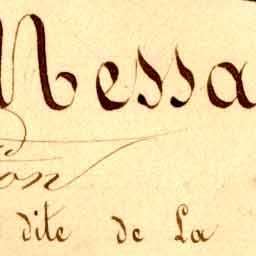 Messa
ion
dite de La